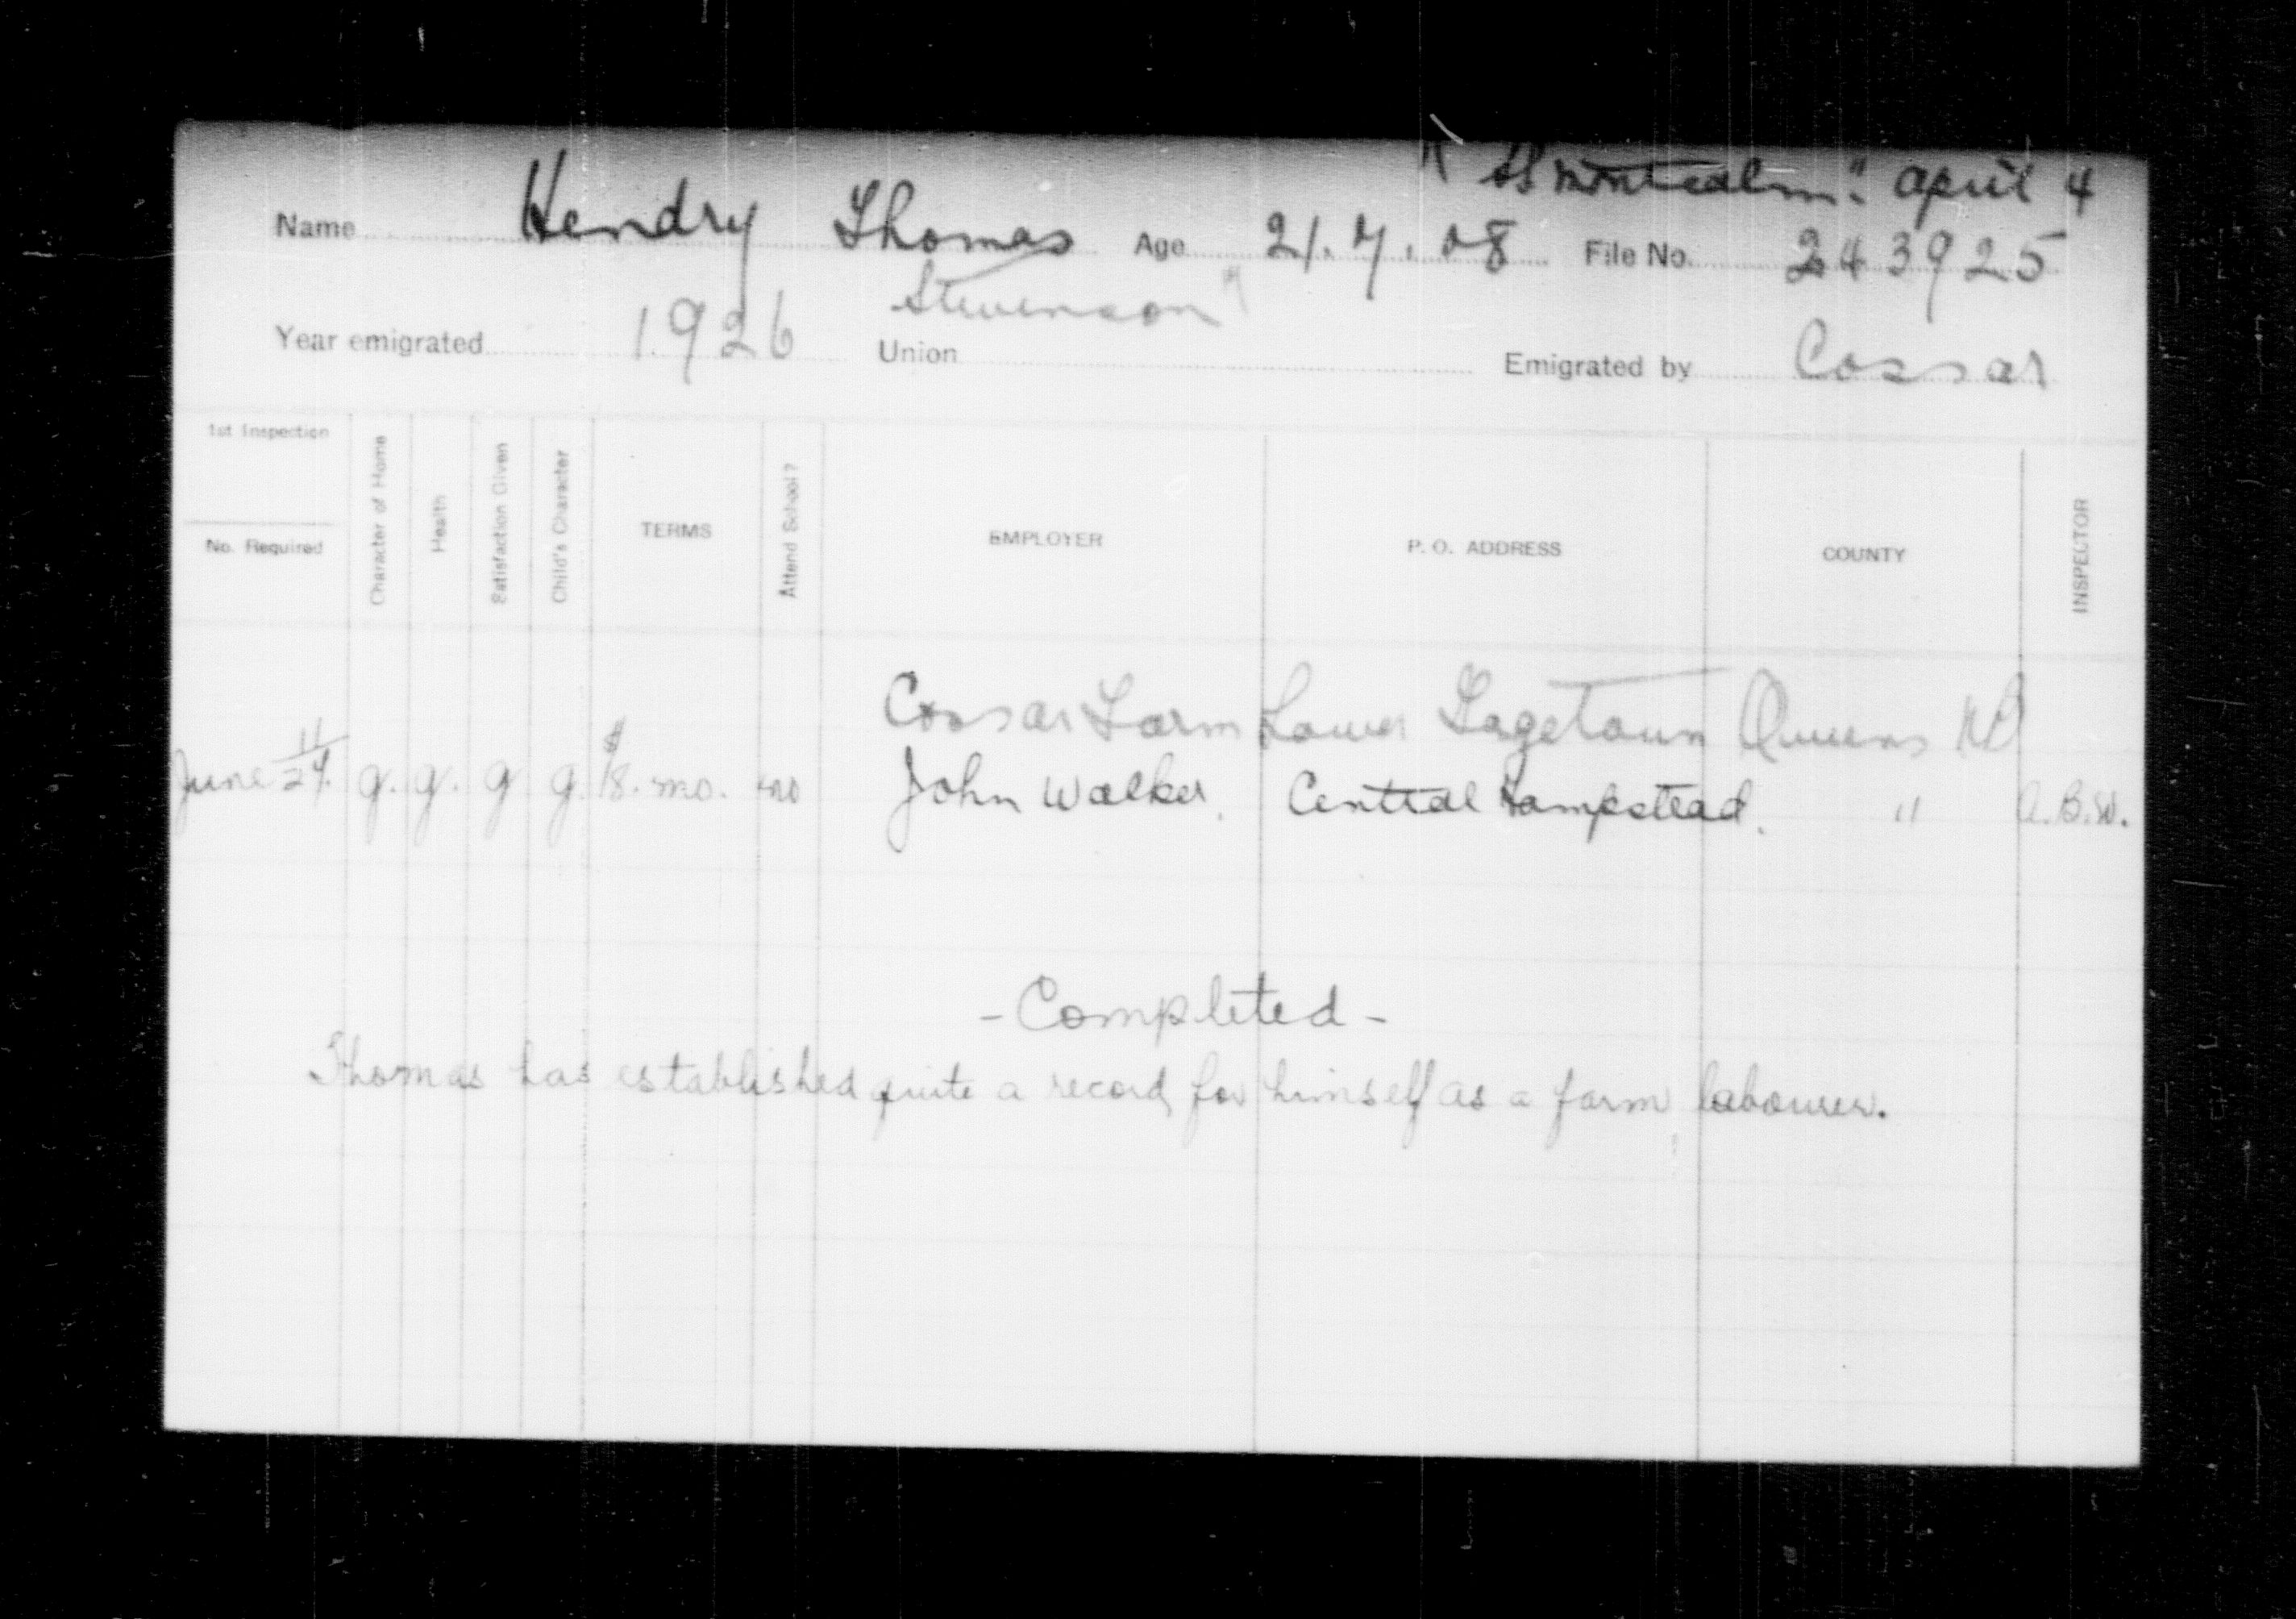 "SS Montcalm". April 4
Name Hendry Thomas Age 21.7.08 File No. 243925
Stevenson"
Year emigrated 1926 Union Emigrated by Cossar
1st Inspection
No. Required
Character of Home
Health
Satisfaction Given
Child's Character
TERMS
Attend School?
EMPLOYER
P. O. ADDRESS
COUNTY
INSPECTOR
Cossar Farm Lower Gagetown Queens NB
June 11/27. g. g. g g. $18. mo. no John Walker. Central Hampstead. " A.B.W.
- Completed -
Thomas has established quite a record for himself as a farm labourer.